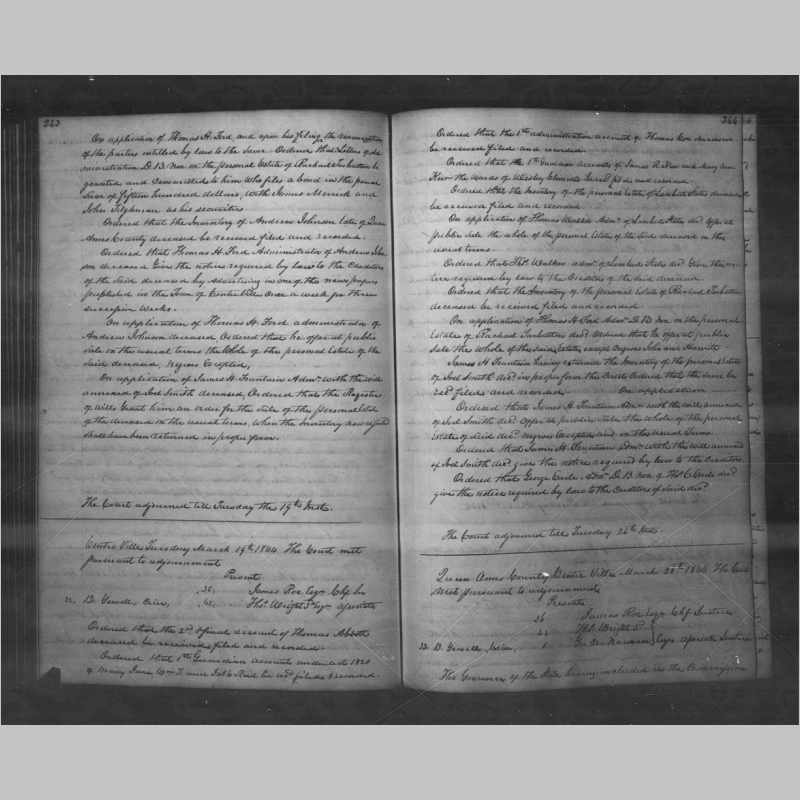 263
On application of Thomas H. Ford, and upon his filing the renunciation
of the parties entitled by law to the same. Ordered that Letters of ad
ministration D. B. Non on the personal Estate of Rachael Turbutton be
granted and committed to him, Who files a bond in the penal
Sum of fifteen hundred dollars, with James Merrick and
John Tilghman as his securities.
Ordered that the Inventory of Andrew Johnson late of Queen
Anns County deceased be received filed and recorded.
Ordered that Thomas H. Ford Administrator of Andrew John
son deceased Give the notice required by law to the Creditors
of the said deceased by advertising in one of the news papers
published in the Town of Centreville Once a week for three
successive weeks.
On application of Thomas H. Ford administrator of
Andrew Johnson deceased Ordered that he offer at public
sale on the usual terms the whole of the personal estate of the
said deceased, negroes Excepted,
On application of James H. Fountain Admr. with the will
annexed of Joel Smith deceased, Ordered that the Register
of Wills Grant him an order for the sale of the personal estate
of the deceased on the usual terms, when the Inventory
shall have been returned in proper form.
The Court adjourned till Tuesday the 19th Inst.
Centre Ville Tuesday March 19th 1844. The Court met
pursuant to adjournment
Present
James Roe Esqr. Chf. Jus
B. Gewell, Crier,
Thos. Wright 3d Esqr. associate
Ordered that the 2nd & final account of Thomas Abbott
deceased be received filed and recorded.
Ordered that 1st Guardian accounts
of Mary Jane be recd. filed & recorded.
264
Ordered that the 1st administration account of Thomas Cox deceased
be received filed and recorded.
Ordered that the 1st Guardian accounts of James R. and Mary Ann
the Wards of Wesley be recd. filed and recorded
Ordered that the Inventory of the personal estate of Lambert deceased
be received filed and recorded.
On application of Thomas Admr. of Lambert decd. offer at
public sale the whole of the personal estate of the said deceased on the
usual terms.
Ordered that Thos. admr. of Lambert decd. Give the no-
tice required by law to the Creditors of the said deceased.
Ordered that the Inventory of the personal Estate of Rachael Turbutton
deceased be received filed and recorded.
On application of Thomas H. Ford Admr. D. B. Non on the personal
Estate of Rachael Turbutton decd. Ordered that he offer at public
Sale the whole of the said estate, except negroes John and Harriett
James H. Fountain having returned the Inventory of the personal estate
of Joel Smith decd. in proper form the Court Ordered that the same be
recd. filed and recorded. On application
Ordered that James H. Fountain Admr. with the will annexed
of Joel Smith decd. offer at public sale the whole of the personal
estate of said decd. negroes Excepted and on the usual Terms
Ordered that James H. Fountain Admr. with the will annexed
of Joel Smith decd. give the notice required by law to the Creditors.
Ordered that George Admr. D. B. Non of Thos. C. decd.
give the notice required by law to the Creditors of said decd.
The Court adjourned till Tuesday 26th Inst.
Queen Anns County, Centre Ville March 26th 1844 The Court
Met pursuant to adjournment
Present
James Roe Esqr. Chf. Justice
Thos. Wright 3d
B. Gewell, Crier, Esqrs. associate Justices
The Governor of the State having included in the Commission